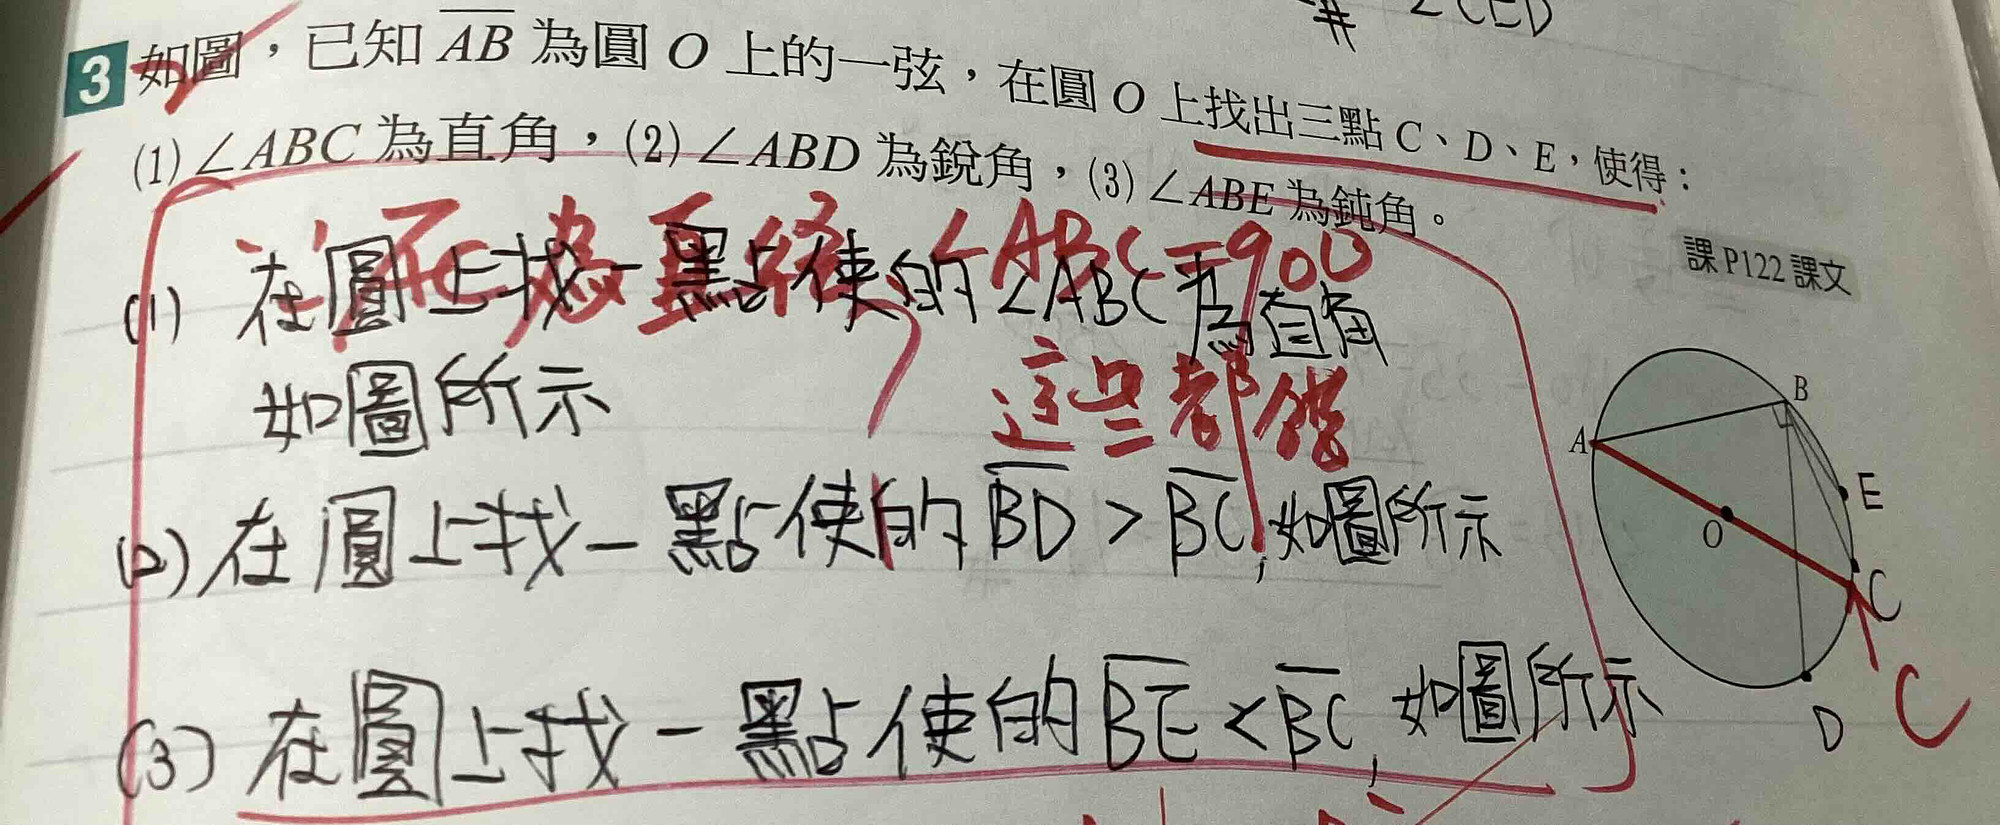 # ∠CED
3 如圖，已知 AB 為圓 O 上的一弦，在圓 O 上找出三點 C、D、E，使得：
(1) ∠ABC 為直角，(2) ∠ABD 為銳角，(3) ∠ABE 為鈍角。
課 P122 課文
AC 為直徑，∠ABC=90°
(1) 在圓上找一點使的∠ABC為直角
如圖所示
這些都錯
(2) 在圓上找一點使的 BD > BC, 如圖所示
(3) 在圓上找一點使的 BE < BC, 如圖所示
B
A
E
O
C
D
C